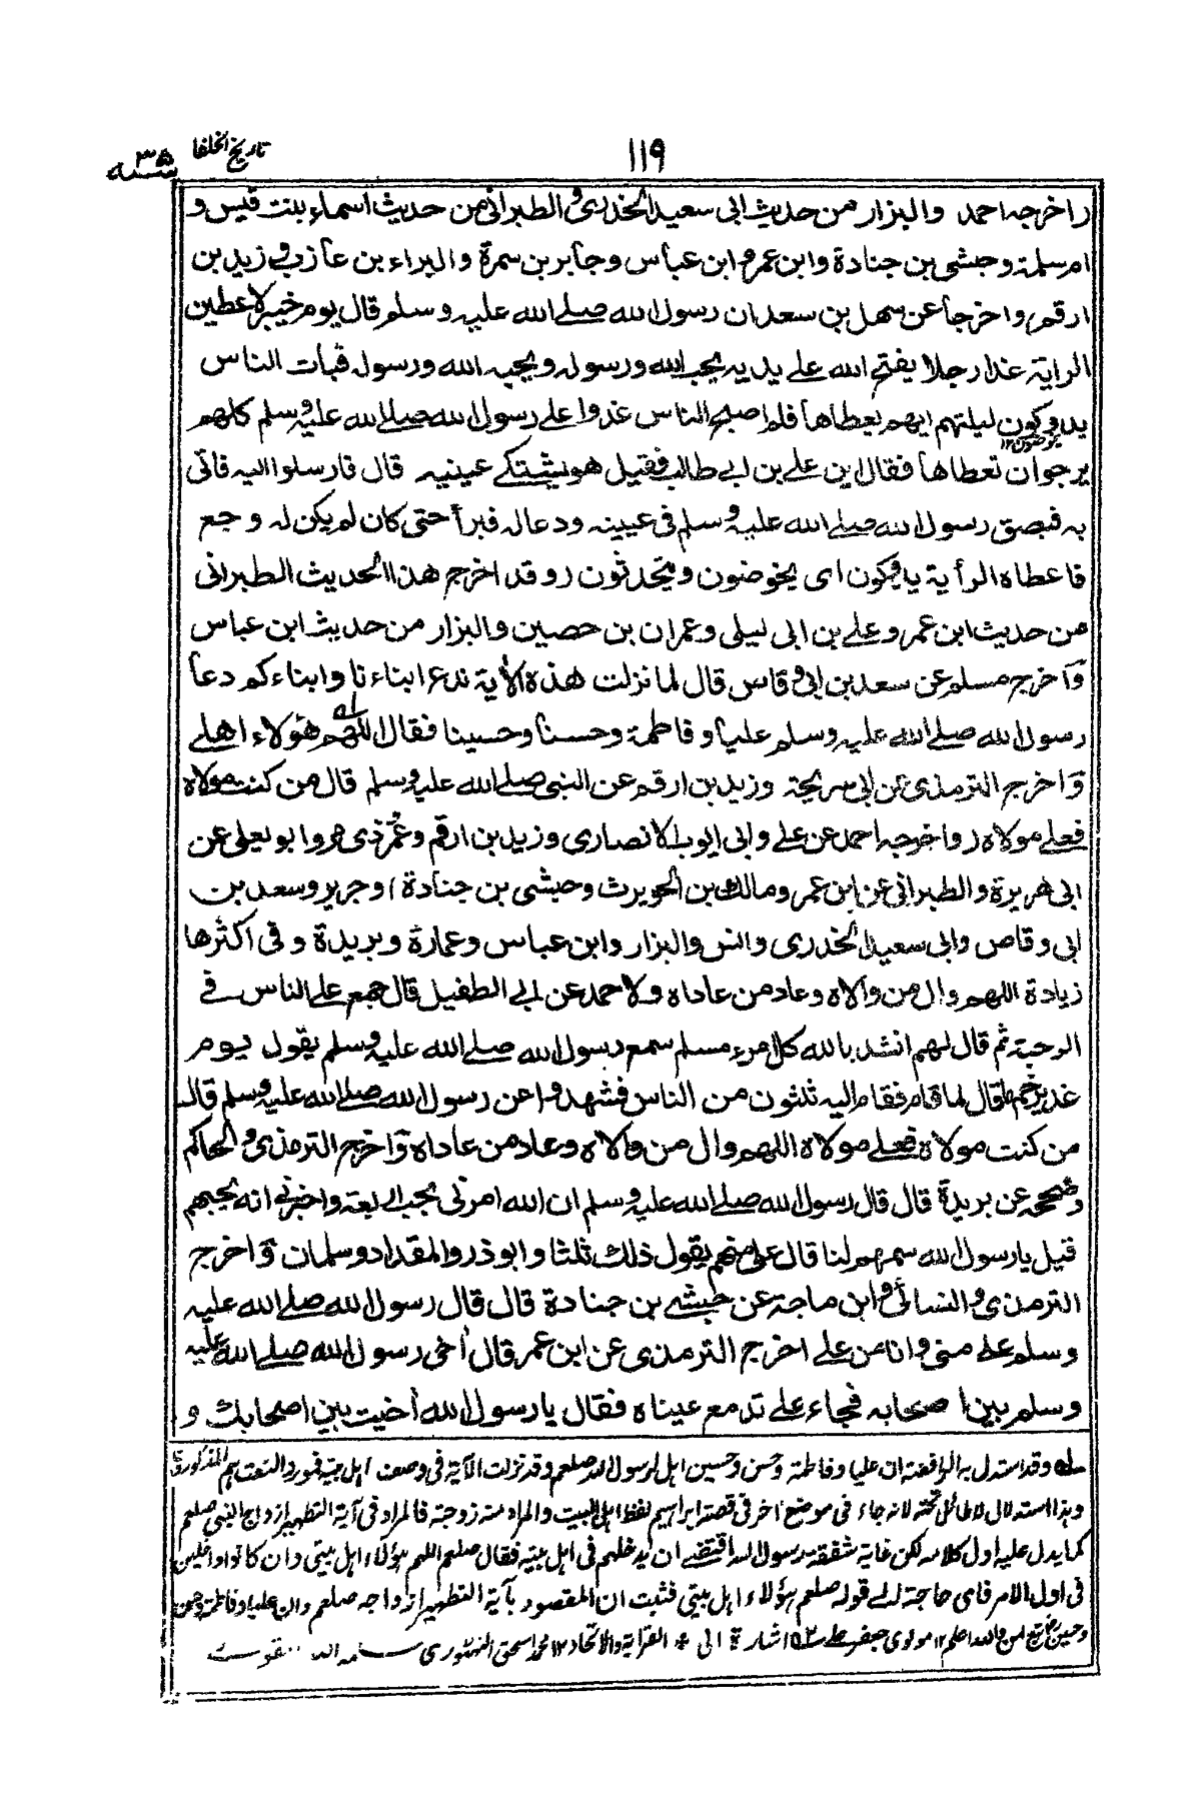 تاريخ الخلفا
١١٩
سنة ٣٥
(اخرجه احمد والبزار من حديث ابى سعيد الخدرى والطبرانى من حديث اسماء بنت قيس و
ام سلمة وحبشى بن جنادة وابن عمر وابن عباس وجابر بن سمرة والبراء بن عازب وزيد بن
ارقم) واخرجا عن سهل بن سعد ان رسول الله صلے الله عليه وسلم قال يوم خيبر لاعطين
الراية غدا رجلا يفتح الله علے يديه يحب الله ورسوله ويحبه الله ورسوله فبات الناس
يدوكون ليلتهم ايهم يعطاها فلما اصبح الناس غدوا علے رسول الله صلے الله عليه وسلم كلهم
يخوضون١٢
يرجو ان تعطاها فقال اين علے بن ابے طالب فقيل هو يشتكے عينيه قال فارسلوا اليه فاتى
به فبصق رسول الله صلے الله عليه وسلم فى عيينه ودعاله فبرأ حتى كان لم يكن له وجع
فاعطاه الرأية يدوكون اى يخوضون ويتحدثون (وقد اخرج هذا الحديث الطبرانى
من حديث ابن عمر وعلے بن ابى ليلى وعمران بن حصين والبزار من حديث ابن عباس
وٓاخرج مسلم عن سعد بن ابى وقاس قال لما نزلت هذه الأية ندع ابناءنا وابناءكم دعا
رسول الله صلے الله عليه وسلم عليا وفاطمة وحسنا وحسينا فقال اللهم هؤلاء اهلے
وٓاخرج الترمذى عن ابى سريحة وزيد بن ارقم عن النبى صلے الله عليه وسلم قال من كنت مولاه
فعلے مولاه (واخرجه احمد عن علے وابى ايوب الانصارى وزيد بن ارقم وعمر ذى مر وابو يعلى عن
ابى هريرة والطبرانى عن ابن عمر ومالك بن الحويرث وحبشى بن جنادة) وجرير وسعد بن
ابى وقاص وابى سعيد الخدرى وانس والبزار وابن عباس وعمارة وبريدة وفى اكثرها
زيادة اللهم وال من والاه وعاد من عاداه ولاحمد عن ابے الطفيل قال جمع علے الناس فے
الرحبة ثم قال لهم انشد بالله كل امرء مسلم سمع رسول الله صلے الله عليه وسلم يقول يوم
غدير خم ما قال لما قام فقام اليه ثلثون من الناس فشهدوا عن رسول الله صلے الله عليه وسلم قال
من كنت مولاه فعلے مولاه اللهم وال من والاه وعاد من عاداه وٓاخرج الترمذى والحاكم
وصححه عن بريدة قال قال رسول الله صلے الله عليه وسلم ان الله امرنى بحب اربعة واخبرنى انه يحبهم
قيل يا رسول الله سمهم لنا قال علے منهم يقول ذلك ثلثا وابو ذر والمقداد وسلمان وٓاخرج
الترمذى والنسائى وابن ماجة عن حبشے بن جنادة قال قال رسول الله صلے الله عليه
وسلم علے منى وانا من علے اخرج الترمذى عن ابن عمر قال أخى رسول الله صلے الله عليه
وسلم بين اصحابه فجاء علے تدمع عيناه فقال يا رسول الله أخيت بين اصحابك و
سله وقد استدل بالواقعة ان عليا وفاطمة وحسن وحسين اهل لرسول الله صلعم وقد نزلت الآية فى وصف اهل بيته فمورد النعت هم المذكورون
وهذا استدلال لا طائل تحته لانه جاء فى موضع آخر فى قصة ابراهيم لفظ اهل البيت والمراد منه زوجته فالمراد فى آية التطهير ازواج النبى صلعم
كما يدل عليه اول كلامه لكن غاية شفقة رسول الله اقتضے ان يدخلهم فى اهل بيته فقال صلعم اللهم هؤلاء اهل بيتى وان كانوا داخلين
فى اول الامر فاى حاجة الے قوله صلعم هؤلاء اهل بيتى فثبت ان المقصود بآية التطهير ازواجه صلعم وان عليا وفاطمة وحسن
وحسين والله اعلم ١٢ مولوى جعفر علے ٥٢ اشارة الى القرابة والاتحاد ١٢ محمد اسحق